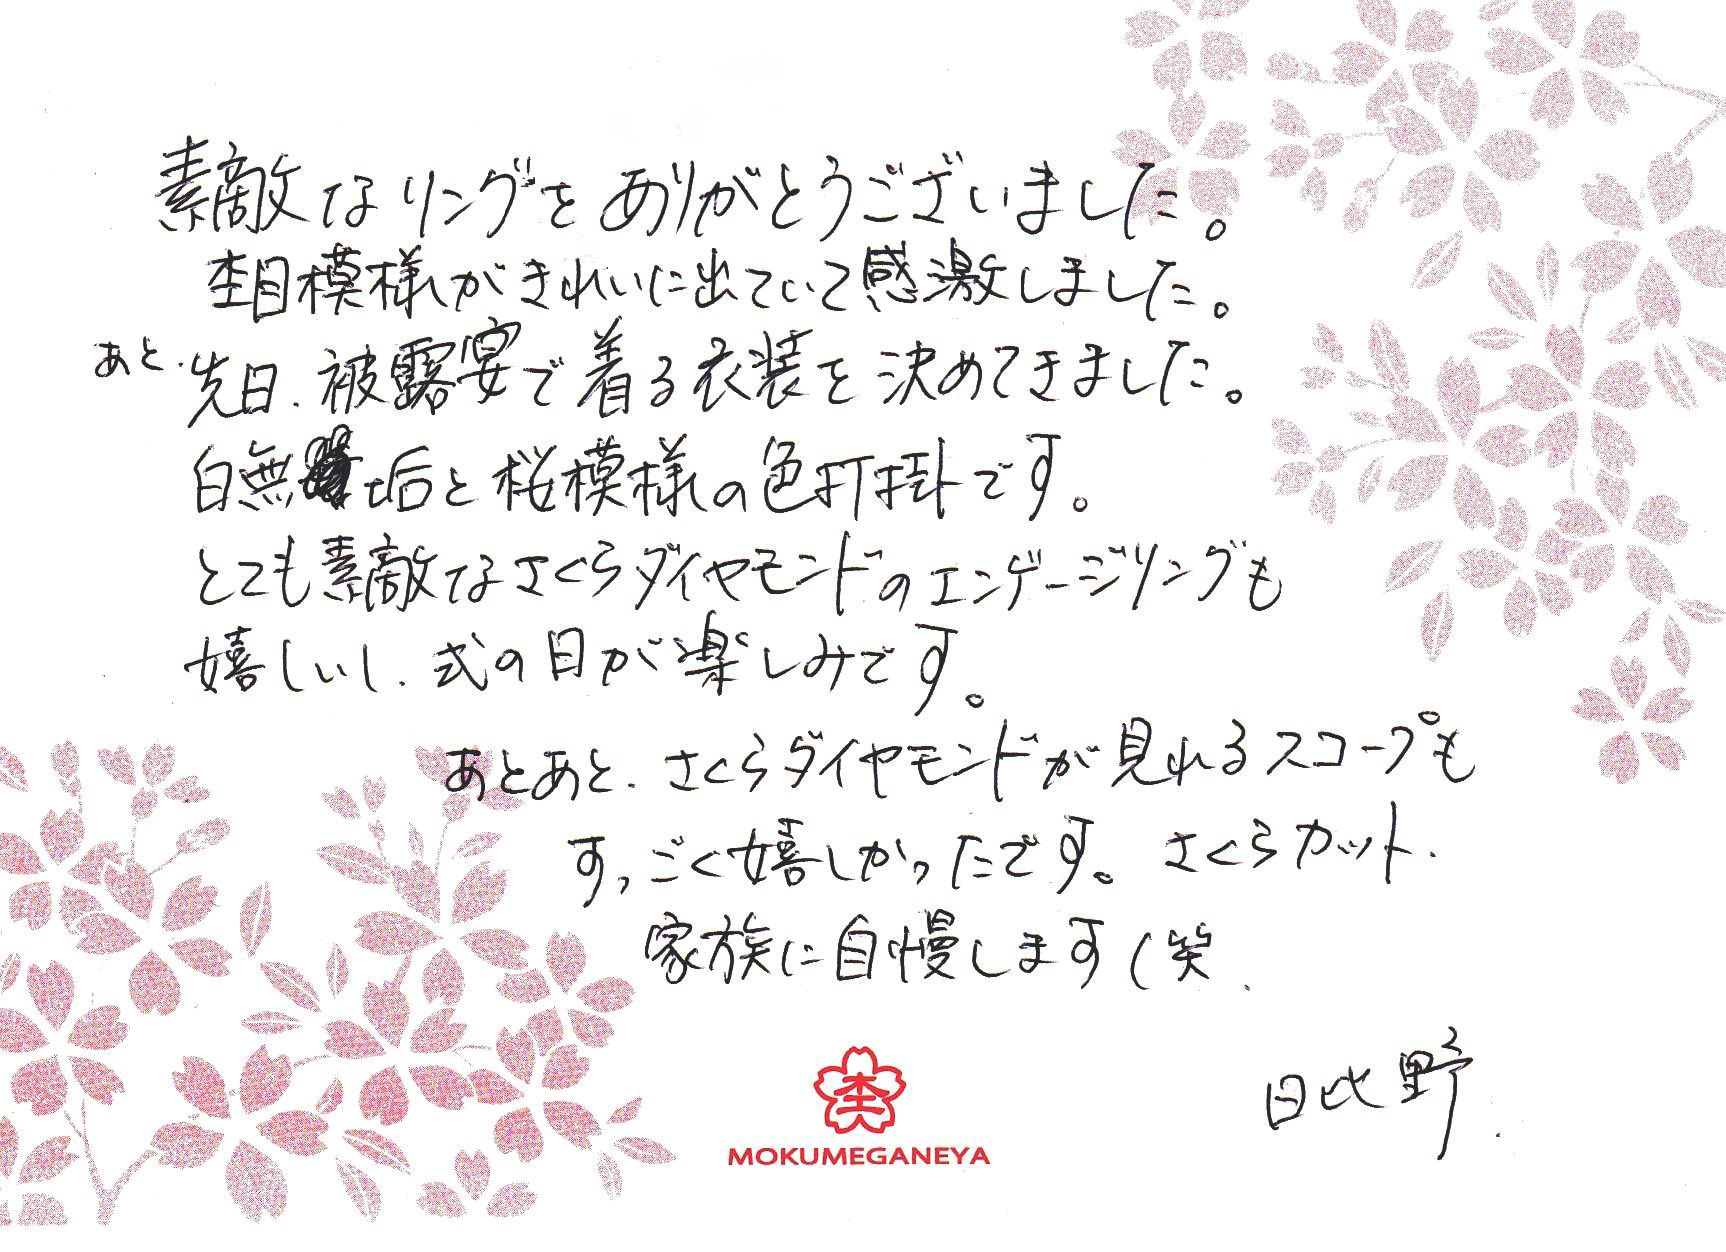 素敵なリングをありがとうございました。
杢目模様がきれいに出ていて感激しました。
あと、先日、被露宴で着る衣装を決めてきました。
白無垢と桜模様の色打掛です。
とても素敵なさくらダイヤモンドのエンゲージリングも
嬉しいし、式の日が楽しみです。
あとあと、さくらダイヤモンドが見れるスコープも
すっごく嬉しかったです。さくらカット、
家族に自慢します(笑、
日比野、
杢
MOKUMEGANEYA